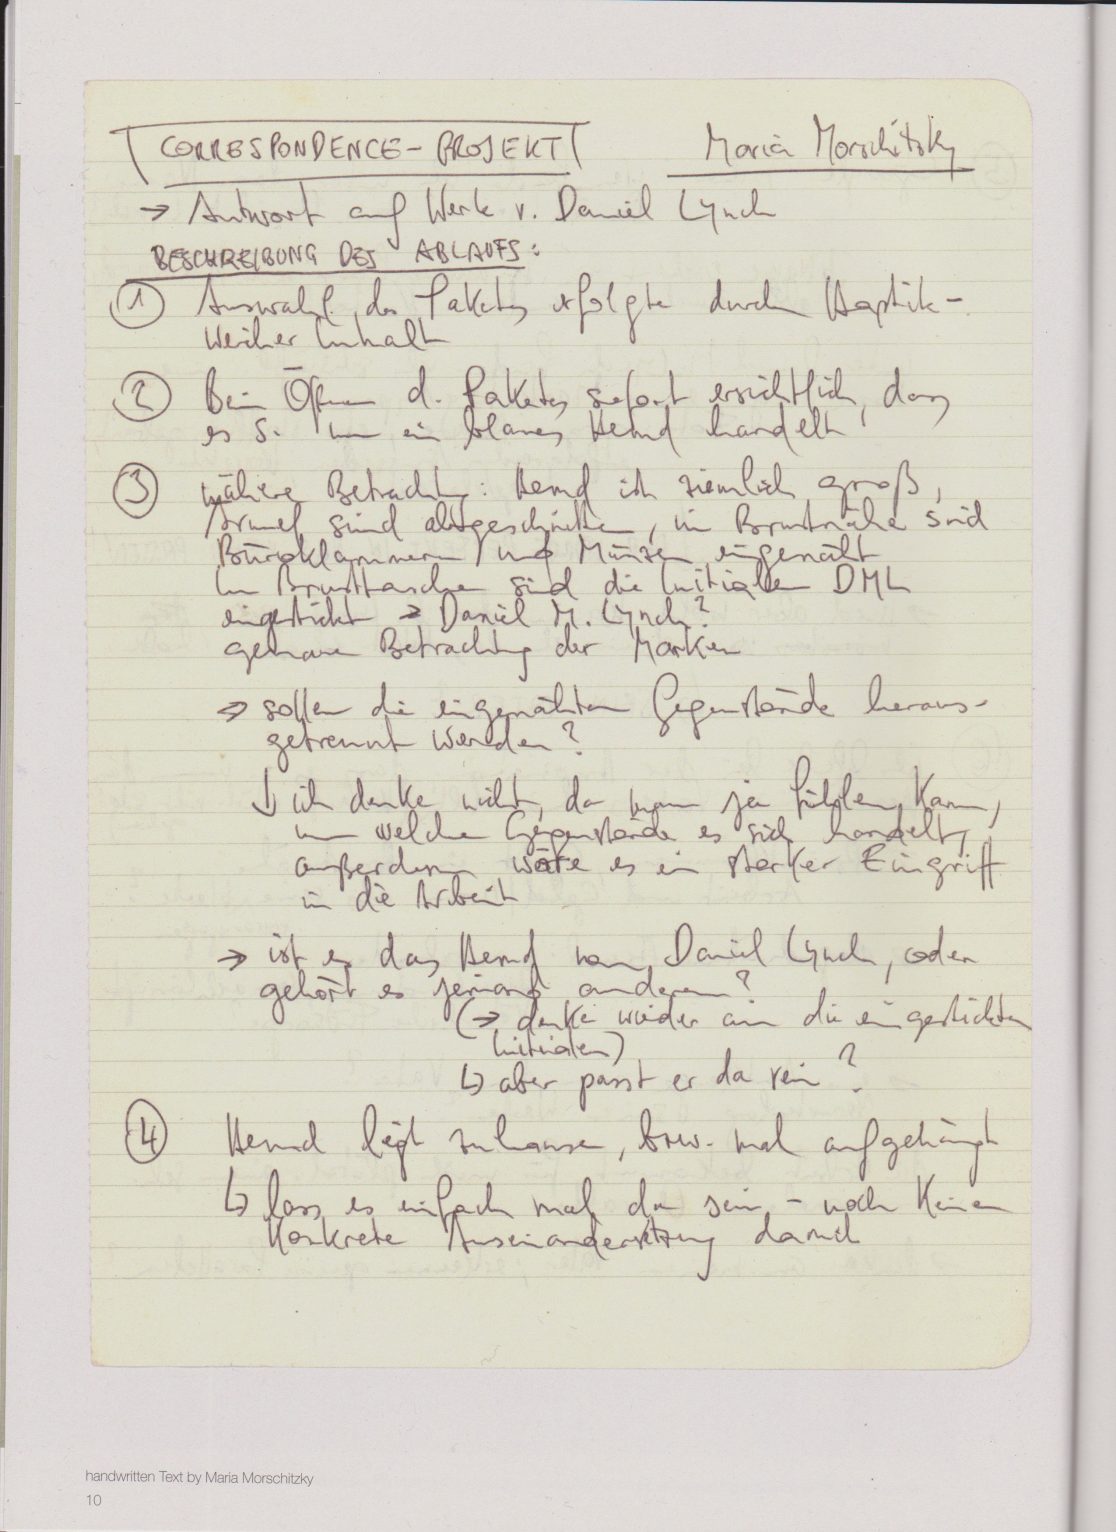 CORRESPONDENCE-PROJEKT Maria Morschitzky
→ Antwort auf Werk v. Daniel Lynch
BESCHREIBUNG DES ABLAUFS:
① Auswahl des Paketes erfolgte durch Haptik -
weicher Inhalt
② Beim Öffnen d. Paketes sofort ersichtlich, dass
es s. um ein blaues Hemd handelt
③ nähere Betrachtung: Hemd ist ziemlich groß,
Ärmel sind abgeschnitten, in Brustnähe sind
Büroklammern und Münzen eingenäht
In Brusttasche sind die Initialen DML
eingestickt → Daniel M. Lynch?
genaue Betrachtung der Marken
⇒ sollen die eingenähten Gegenstände heraus-
getrennt werden?
↓ ich denke nicht, da man ja fühlen kann,
um welche Gegenstände es sich handelt,
außerdem wäre es ein starker Eingriff
in die Arbeit
→ ist es das Hemd von Daniel Lynch, oder
gehört es jemand anderem?
(→ denke wieder an die eingestickten
Initialen)
↳ aber passt er da rein?
④ Hemd liegt zuhause, bzw. mal aufgehängt
↳ lass es einfach mal da sein - noch keine
konkrete Auseinandersetzung damit
handwritten Text by Maria Morschitzky
10